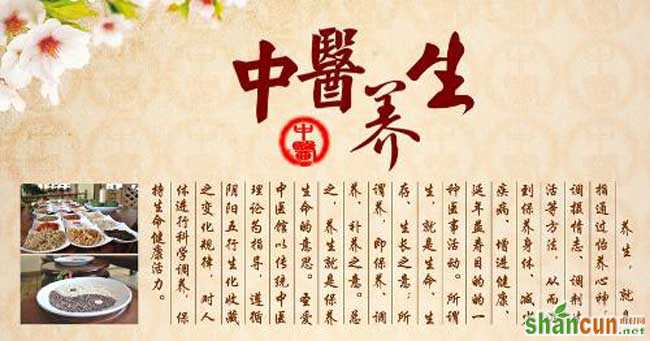 中醫养生
中醫
养生，就
指通过怡养心神、
调摄情志、调剂生
活等方法，从而
到保养身体、减少
疾病、增进健康、
延年益寿目的的一
种医事活动。所谓
生，就是生命、生
存、生长之意；所
谓养，即保养、调
养、补养之意。总
之，养生就是保养
生命的意思。圣爱
中医馆以传统中医
理论为指导，遵循
阴阳五行生化收藏
之变化规律，对人
体进行科学调养，保
持生命健康活力。
shancun
.net